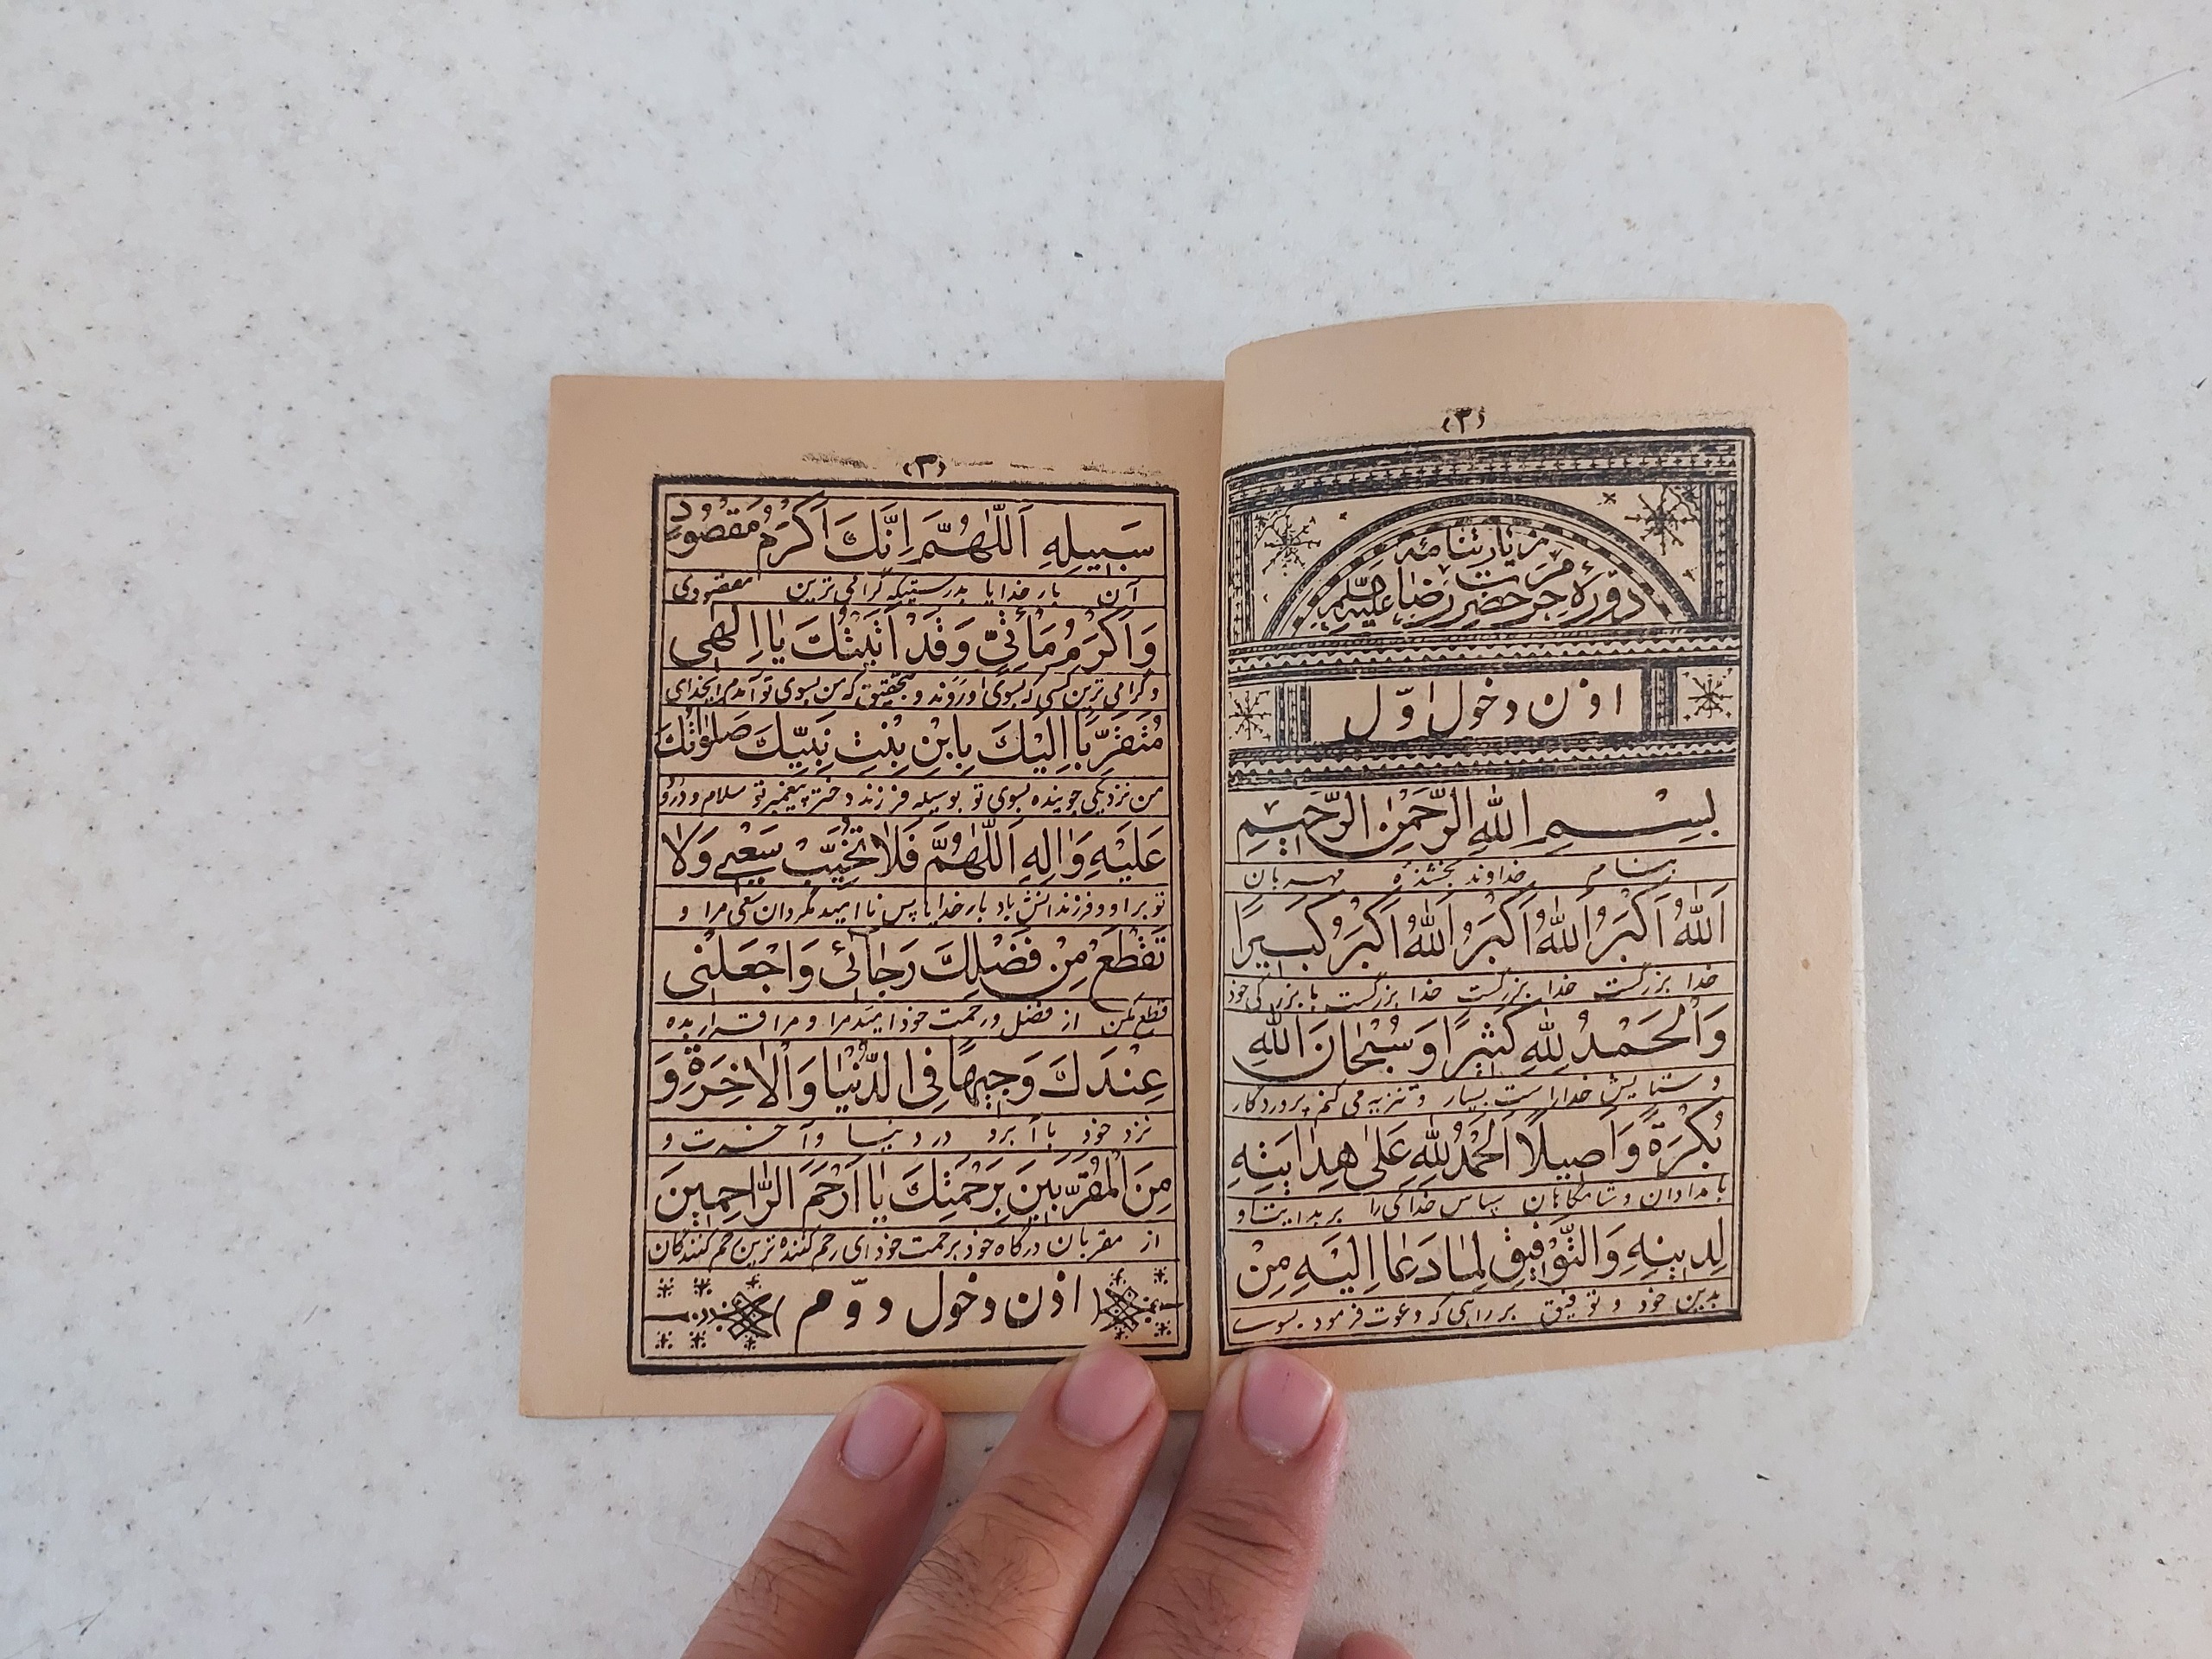 (۲)
زیارتنامه
دورهٔ حرم حضرت رضا علیه السلم
اذن دخول اوّل
بِسْمِ اللهِ الرَّحْمٰنِ الرَّحیمِ
بنام خداوند بخشنده مهربان
اَللهُ اَکْبَرُ اَللهُ اَکْبَرُ اَللهُ اَکْبَرُ کَبیرًا
خدا بزرگست خدا بزرگست خدا بزرگست با بزرگی خود
وَالْحَمْدُ لِلّٰهِ کَثیرًا وَ سُبْحٰانَ اللهِ
و ستایش خدا راست بسیار و تنزیه می کنم پروردگار
بُکْرَةً وَ اَصیلًا اَلْحَمْدُ لِلّٰهِ عَلیٰ هِدٰایَتِهِ
بامدادان و شامگاهان سپاس خدای را بر هدایت او
لِدینِهِ وَالتَّوْفیقِ لِمٰا دَعٰا اِلَیْهِ مِنْ
بدین خود و توفیق بر راهی که دعوت فرمود بسوی
(۳)
سَبیلِهِ اَللّٰهُمَّ اِنَّکَ اَکْرَمُ مَقْصُودٍ
آن بار خدایا بدرستیکه گرامی ترین مقصودی
وَ اَکْرَمُ مَأْتِیٍّ وَ قَدْ اَتَیْتُکَ یٰا اِلٰهی
و گرامی ترین کسی که بسوی او روند و بتحقیق که من بسوی تو آمدم ایخدای
مُتَقَرِّبًا اِلَیْکَ بِابْنِ بِنْتِ نَبِیِّکَ صَلَوٰاتُکَ
من نزدیکی جوینده بسوی تو بوسیله فرزند دختر پیغمبر تو سلام و درود
عَلَیْهِ وَ اٰلِهِ اَللّٰهُمَّ فَلٰا تُخَیِّبْ سَعْیی وَلٰا
تو بر او و فرزندانش باد بار خدایا پس نا امید مگردان سعی مرا و
تَقْطَعْ مِنْ فَضْلِکَ رَجٰائی وَ اجْعَلْنی
قطع مکن از فضل و رحمت خود امید مرا و مرا قرار بده
عِنْدَکَ وَجیهًا فِی الدُّنْیٰا وَ الْاٰخِرَةِ وَ
نزد خود با آبرو در دنیا و آخرت و
مِنَ الْمُقَرَّبینَ بِرَحْمَتِکَ یٰا اَرْحَمَ الرّٰاحِمینَ
از مقربان درگاه خود برحمت خود ای رحم کننده ترین رحم کنندگان
اذن دخول دوّم